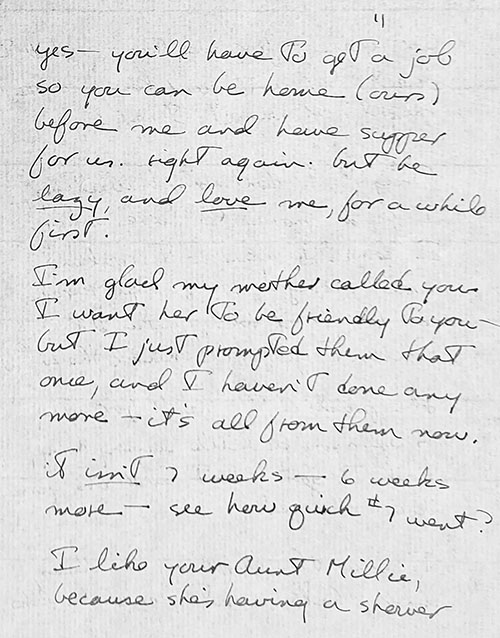 11
yes — you'll have to get a job
so you can be home (ours)
before me and have supper
for us. right again. but be
lazy, and love me, for a while
first.
I'm glad my mother called you
I want her to be friendly to you —
but I just prompted them that
once, and I haven't done any
more — it's all from them now.
it isn't 7 weeks — 6 weeks
more — see how quick #7 went?
I like your Aunt Millie,
because she's having a shower